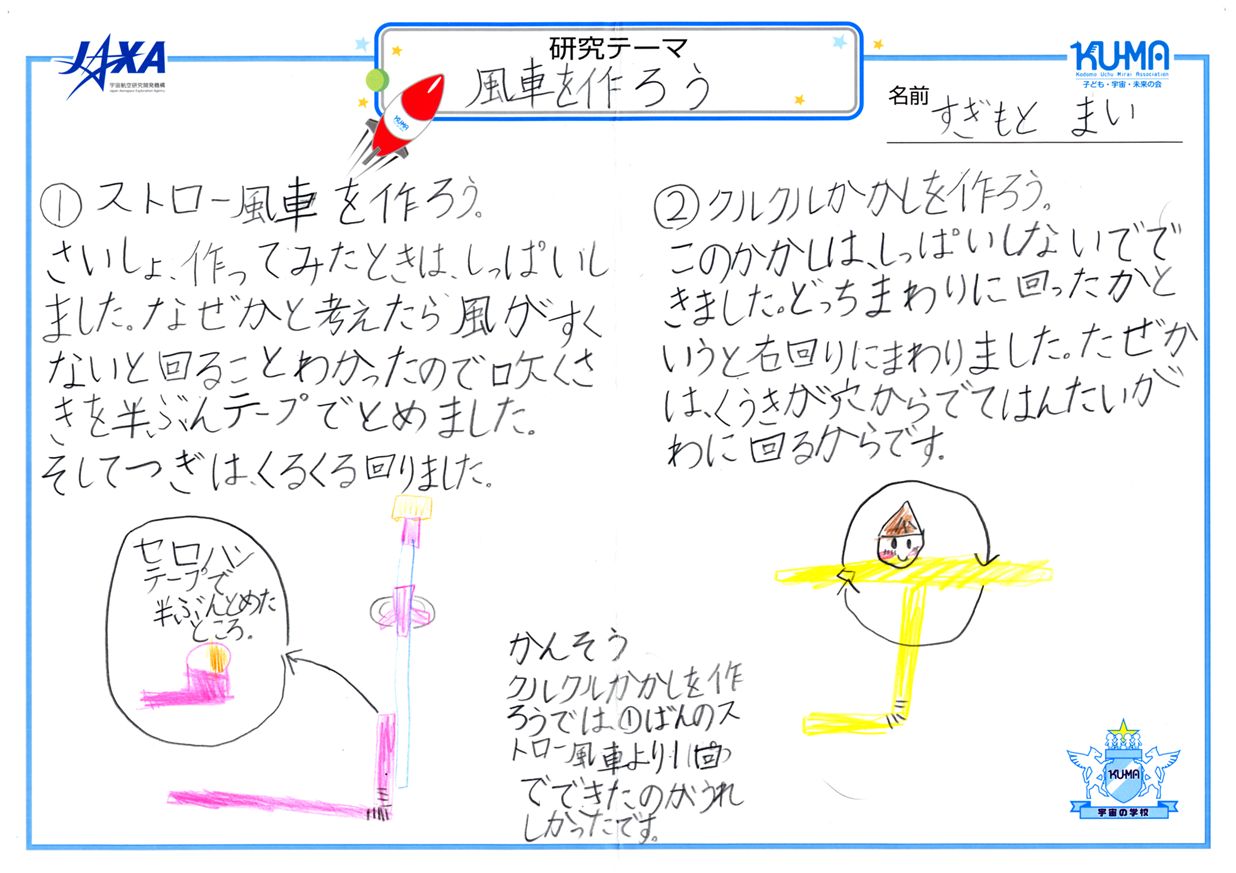 JAXA
宇宙航空研究開発機構
Japan Aerospace Exploration Agency
研究テーマ
風車を作ろう
KUMA
KUMA
Kodomo Uchu Mirai Association
子ども・宇宙・未来の会
名前 すぎもと まい
① ストロー風車を作ろう。
さいしょ、作ってみたときは、しっぱいし
ました。なぜかと考えたら風がすく
ないと回ることわかったので吹くさ
きを半ぶんテープでとめました。
そしてつぎは、くるくる回りました。
セロハン
テープで
半ぶんとめた
ところ。
② クルクルかかしを作ろう。
このかかしは、しっぱいしないでで
きました。どっちまわりに回ったかと
いうと右回りにまわりました。たぜか
は、くうきが穴からでてはんたいが
わに回るからです。
かんそう
クルクルかかしを作
ろうでは、①ばんのス
トロー風車より1回
でできたのがうれ
しかったです。
KUMA
宇宙の学校